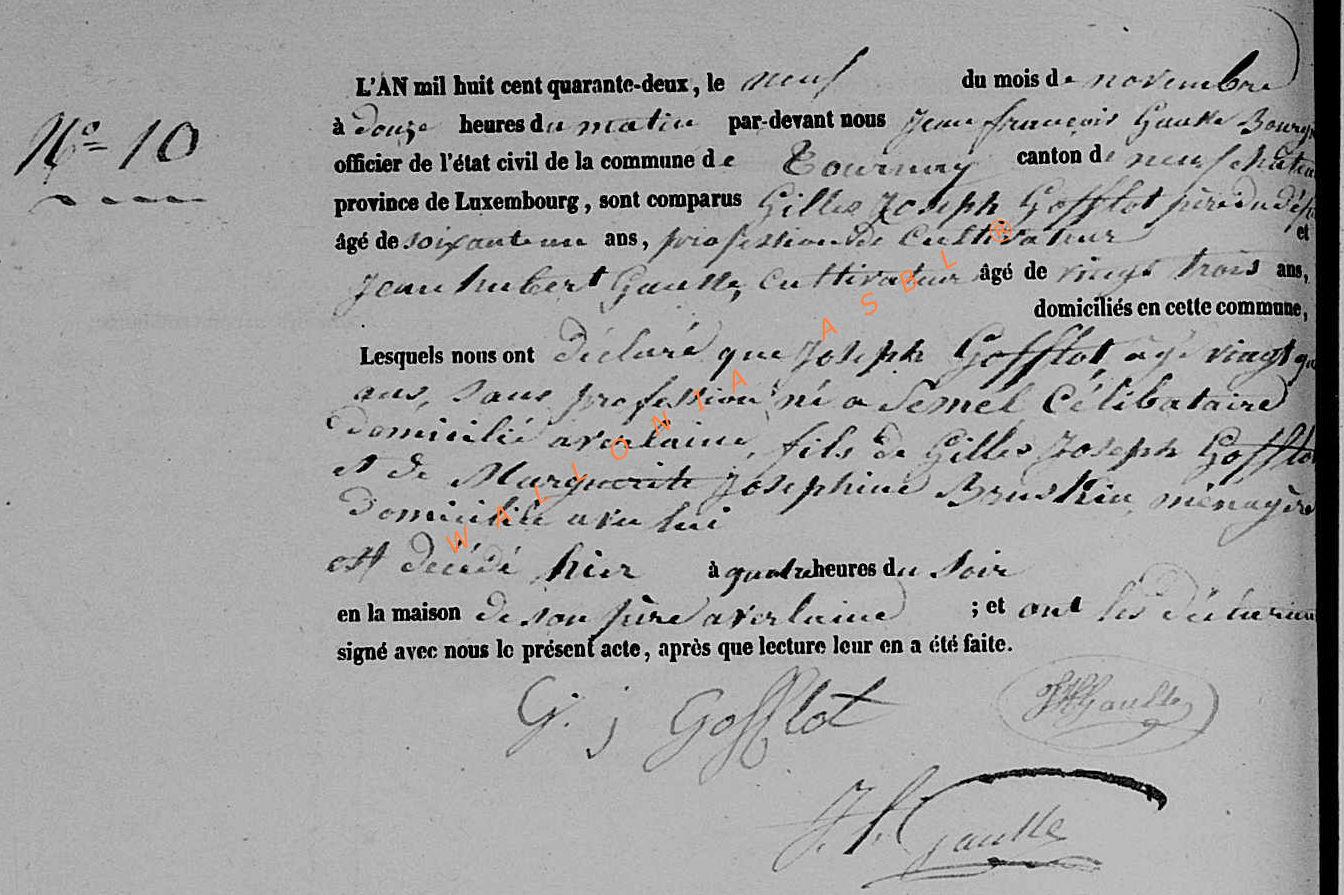 N° 10
L'AN mil huit cent quarante-deux, le neuf du mois de novembre
à douze heures du matin par-devant nous Jean françois Gaulle Bourgm
officier de l'état civil de la commune de Tournay canton de neufchateau
province de Luxembourg, sont comparus Gilles Joseph Gofflot père du défu
âgé de soixante un ans, profession de cultivateur et
Jean hubert Gaulle, cultivateur âgé de vingt trois ans,
domiciliés en cette commune,
Lesquels nous ont déclaré que Joseph Gofflot, âgé vingt qu
ans, sans profession, né a Semel Célibataire
domicilié a verlaine, fils de Gilles Joseph Gofflot
et de Marguerite Josephine Bruskin, ménagère
domiciliée avec lui
est décédé hier à quatre heures du soir
en la maison de son père a verlaine ; et ont les déclarans
signé avec nous le présent acte, après que lecture leur en a été faite.
G. j Gofflot
JHGaulle
J. f. Gaulle
WALLONIA ASBL ®